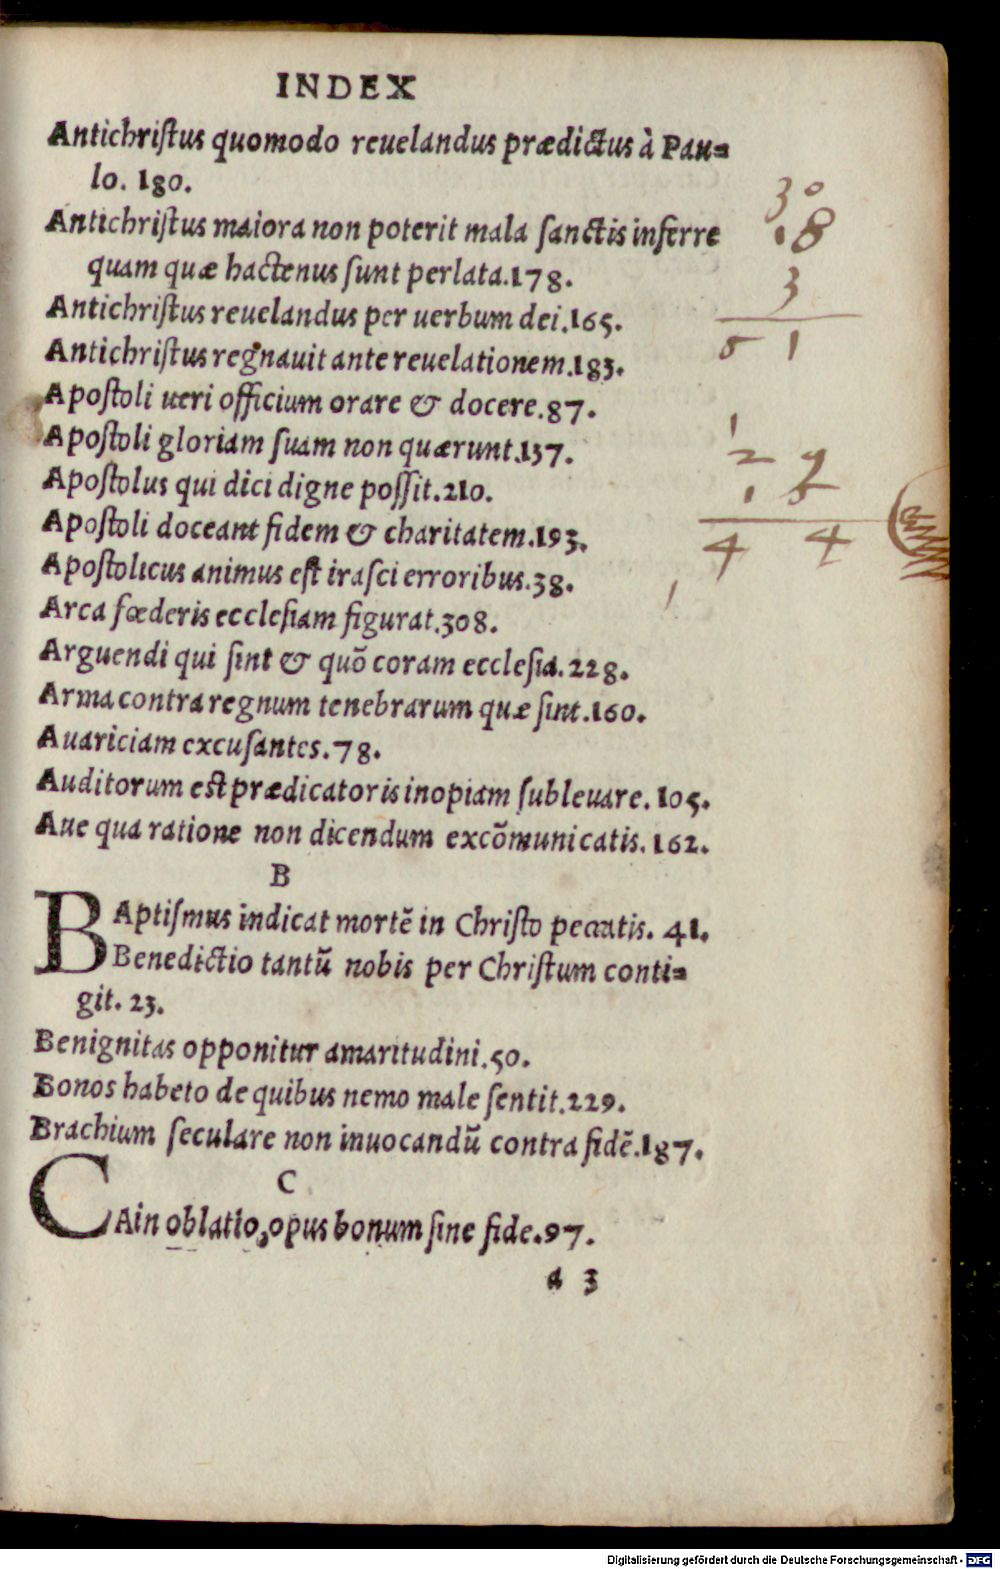 INDEX
Antichriſtus quomodo reuelandus prædictus à Pau=
lo. 180.
Antichriſtus maiora non poterit mala ſanctis inferre
quam quæ hactenus ſunt perlata.178.
Antichriſtus reuelandus per uerbum dei.165.
Antichriſtus regnauit ante reuelationem.183.
Apoſtoli ueri officium orare & docere.87.
Apoſtoli gloriam ſuam non quærunt.137.
Apoſtolus qui dici digne poſſit.210.
Apoſtoli doceant fidem & charitatem.193.
Apoſtolicus animus eſt iraſci erroribus.38.
Arca fœderis eccleſiam figurat.308.
Arguendi qui ſint & quō coram eccleſia.228.
Arma contra regnum tenebrarum quæ ſint.160.
Auariciam excuſantes.78.
Auditorum eſt prædicatoris inopiam ſubleuare. 105.
Aue qua ratione non dicendum excōmunicatis. 162.
B
BAptiſmus indicat mortē in Chriſto peccatis. 41.
Benedictio tantū nobis per Chriſtum conti=
git. 23.
Benignitas opponitur amaritudini.50.
Bonos habeto de quibus nemo male ſentit.229.
Brachium ſeculare non inuocandū contra fidē.187.
C
CAin oblatio, opus bonum ſine fide.97.
a 3
30
18
3
1
4 4
Digitalisierung gefördert durch die Deutsche Forschungsgemeinschaft - DFG